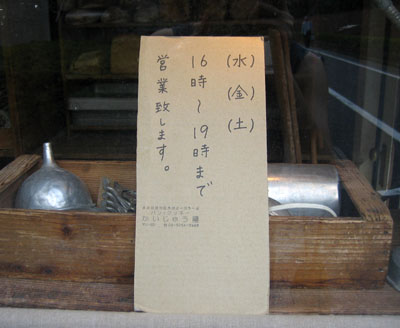 (水)(金)(土)
16時〜19時まで
営業致します。